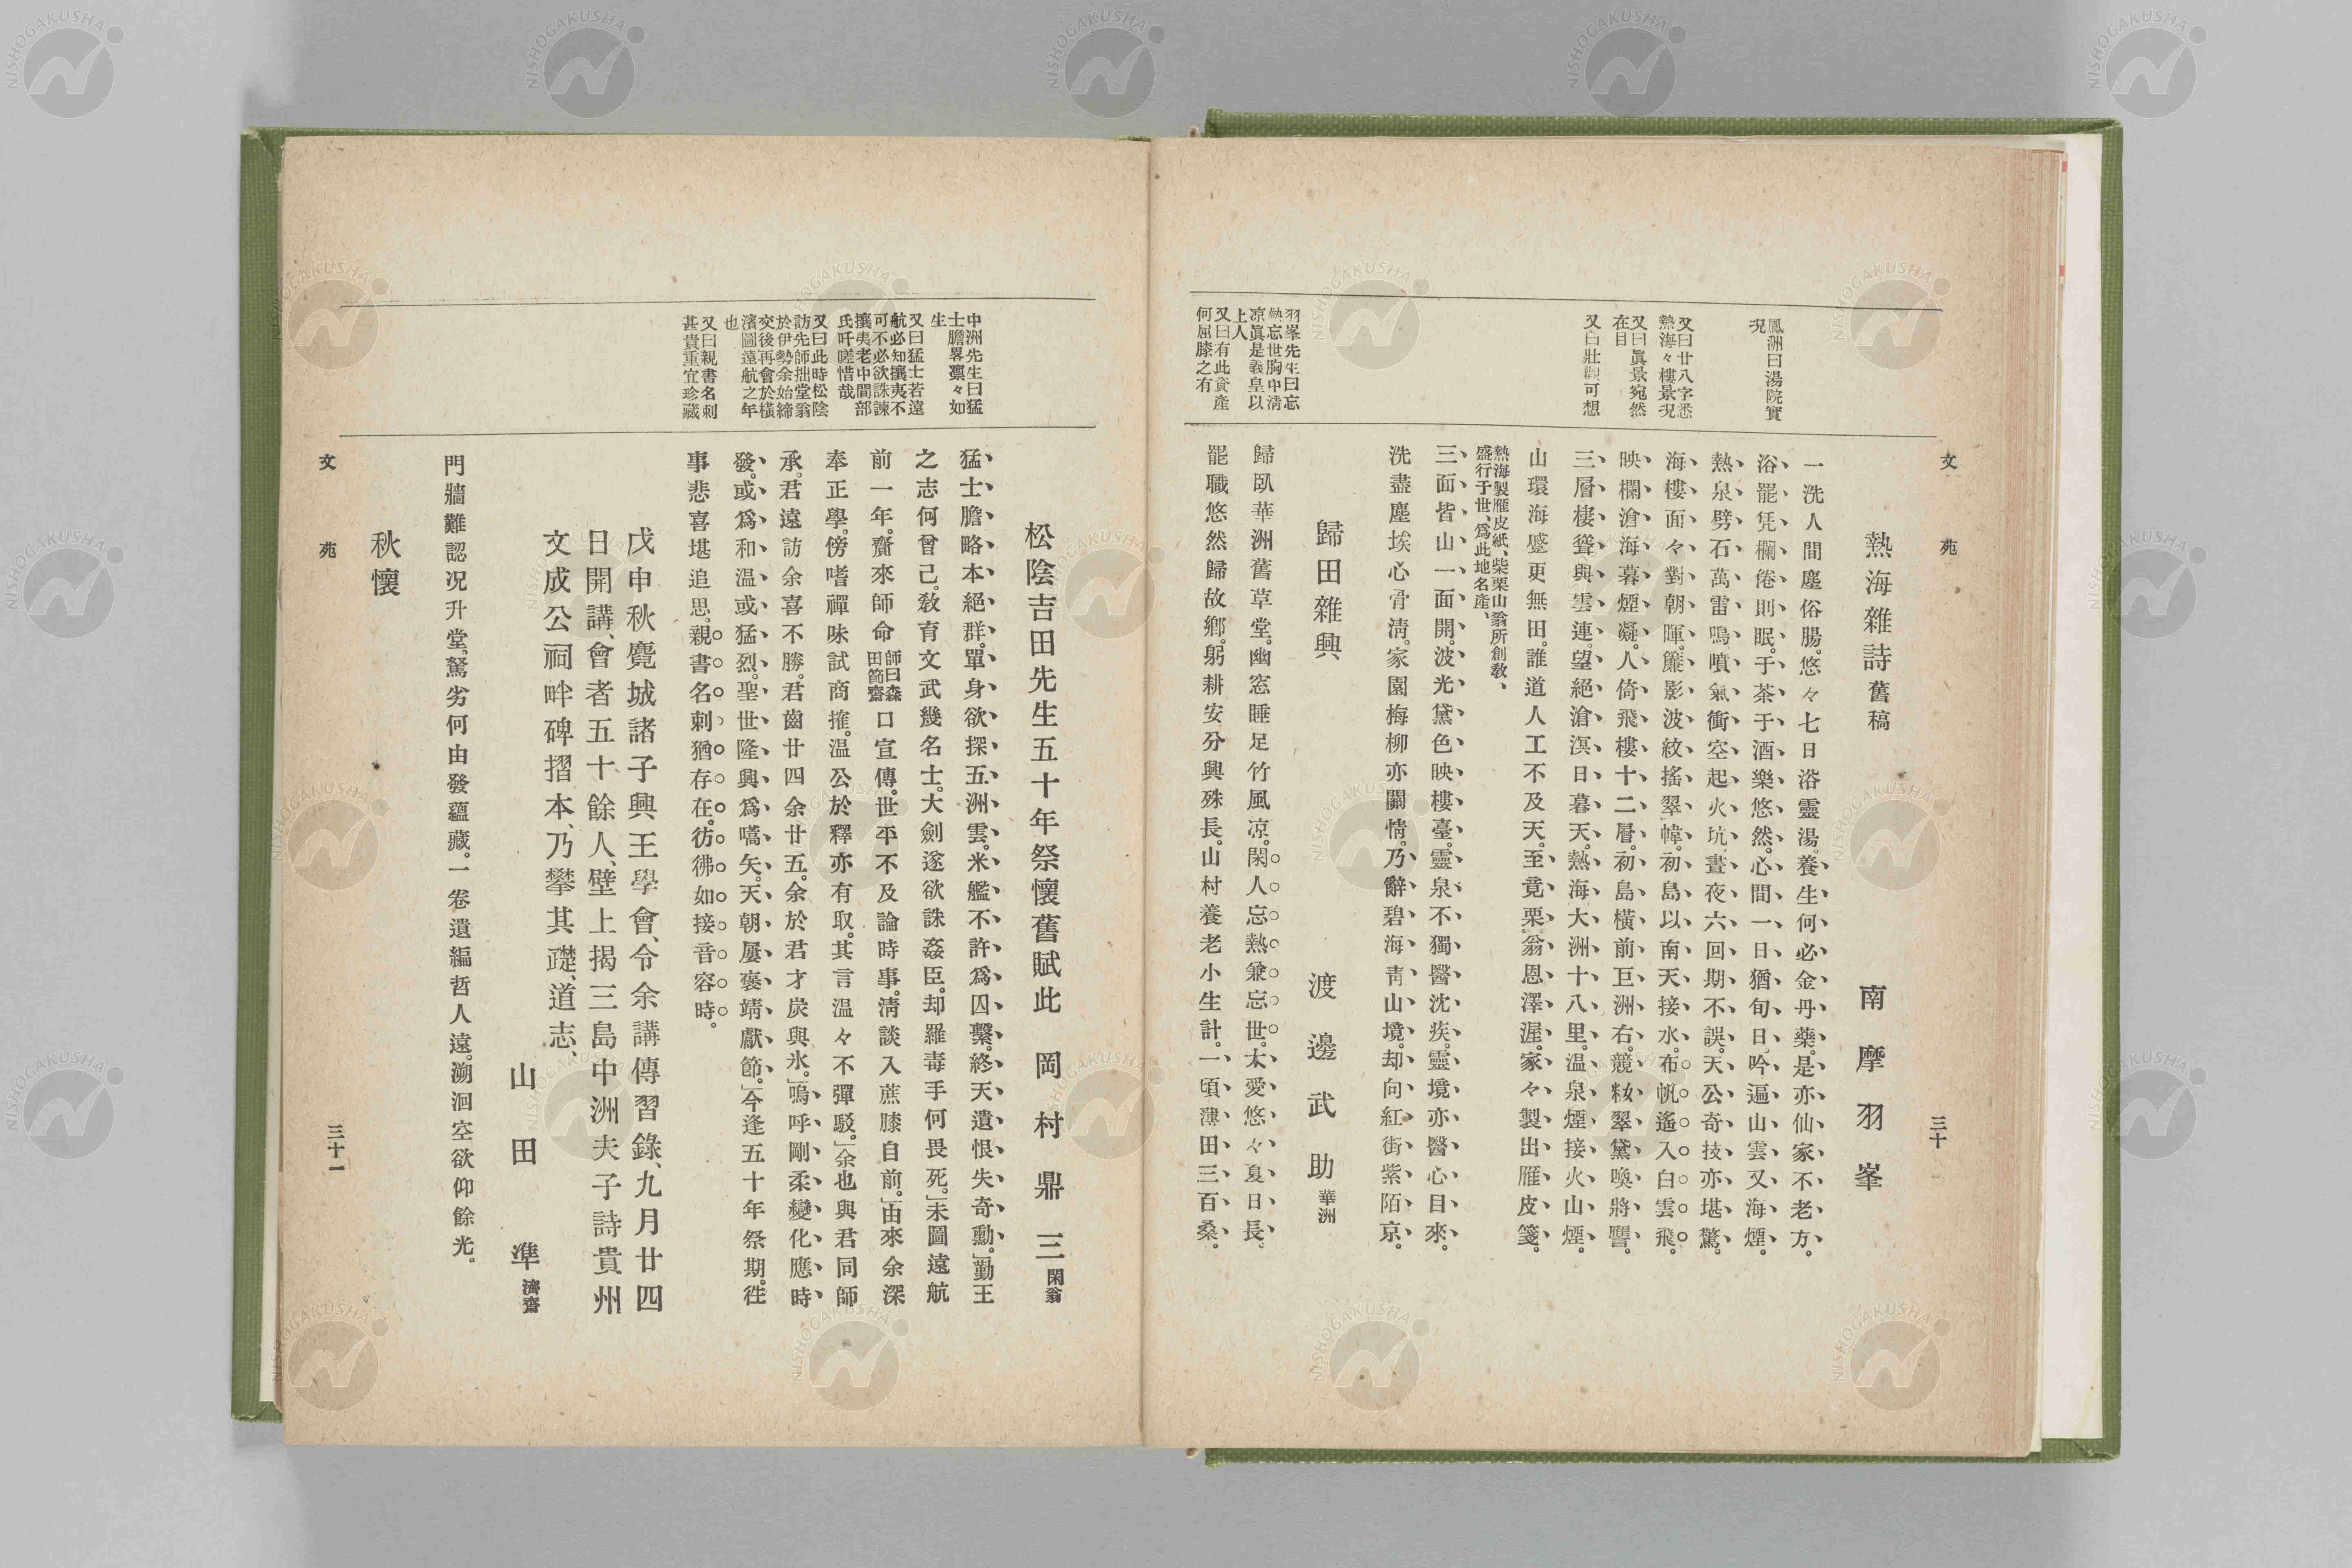 文苑
三十
熱海雜詩舊稿
南摩羽峯
一洗人間塵俗腸。悠々七日浴靈湯。養生何必金丹藥。是亦仙家不老方。
浴罷凭欄倦則眠。于茶于酒樂悠然。心間一日猶旬日、吟遍山雲又海煙。
熱泉劈石萬雷鳴。噴氣衝空起火坑。晝夜六回期不誤。天公奇技亦堪驚。
海樓面々對朝暉。簾影波紋搖翠幃。初島以南天接水。布帆遙入白雲飛。
映欄滄海暮煙凝。人倚飛樓十二層。初島橫前巨洲右。競粧翠黛喚將譍。
三層樓聳與雲連。望絕滄溟日暮天。熱海大洲十八里。温泉煙接火山煙。
山環海蹙更無田。誰道人工不及天。至竟栗翁恩澤渥。家々製出雁皮箋。
熱海製雁皮紙、柴栗山翁所創敎、
盛行于世、爲此地名產、
三面皆山一面開。波光黛色映樓臺。靈泉不獨醫沈疾。靈境亦醫心目來。
洗盡塵埃心骨淸。家園梅柳亦關情。乃辭碧海靑山境。却向紅街紫陌京。
鳳洲曰湯院實
况
又曰廿八字悉
熱海々樓景况
又曰眞景宛然
在目
又曰壯觀可想
歸田雜興
渡邊武助華洲
歸臥華洲舊草堂。幽窓睡足竹風凉。閑人忘熱兼忘世。太愛悠々夏日長。
罷職悠然歸故鄕。躬耕安分興殊長。山村養老小生計。一頃薄田三百桑。
羽峯先生曰忘
熱忘世胸中淸
凉眞是義皇以
上人
又曰有此資產
何屈膝之有
松陰吉田先生五十年祭懷舊賦此
岡村鼎三閑翁
猛士膽略本絕群。單身欲探五洲雲。米艦不許爲囚繫。終天遺恨失奇勳。」勤王
之志何曾已。敎育文武幾名士。大劍遂欲誅姦臣。却羅毒手何畏死。」未圖遠航
前一年。齎來師命師曰森田節齋口宣傳。世平不及論時事。淸談入蔗膝自前。」由來余深
奉正學。傍嗜禪味試商搉。温公於釋亦有取。其言温々不彈駁。」余也與君同師
承。君遠訪余喜不勝。君齒廿四余廿五。余於君才炭與氷。」嗚呼剛柔變化應時
發。或爲和温或猛烈。聖世隆興爲嚆矢。天朝屢褒靖獻節。」今逢五十年祭期。往
事悲喜堪追思。親書名刺猶存在。彷彿如接音容時。
中洲先生曰猛
士膽畧凛々如
生
又曰猛士若遠
航必知攘夷不
可不必欲誅諫
攘夷老中間部
氏吁嗟惜哉
又曰此時松陰
訪先師拙堂翁
於伊勢余始締
交後再會於橫
濱圖遠航之年
也
又曰親書名刺
甚貴重宜珍藏
戊申秋麑城諸子興王學會、令余講傳習錄、九月廿四
日開講、會者五十餘人、壁上揭三島中洲夫子詩貴州
文成公祠畔碑摺本、乃攀其礎、道志、
山田準濟齋
門牆難認況升堂、駑劣何由發蘊藏。一卷遺編哲人遠。溯洄空欲仰餘光。
秋懷
文苑
三十一